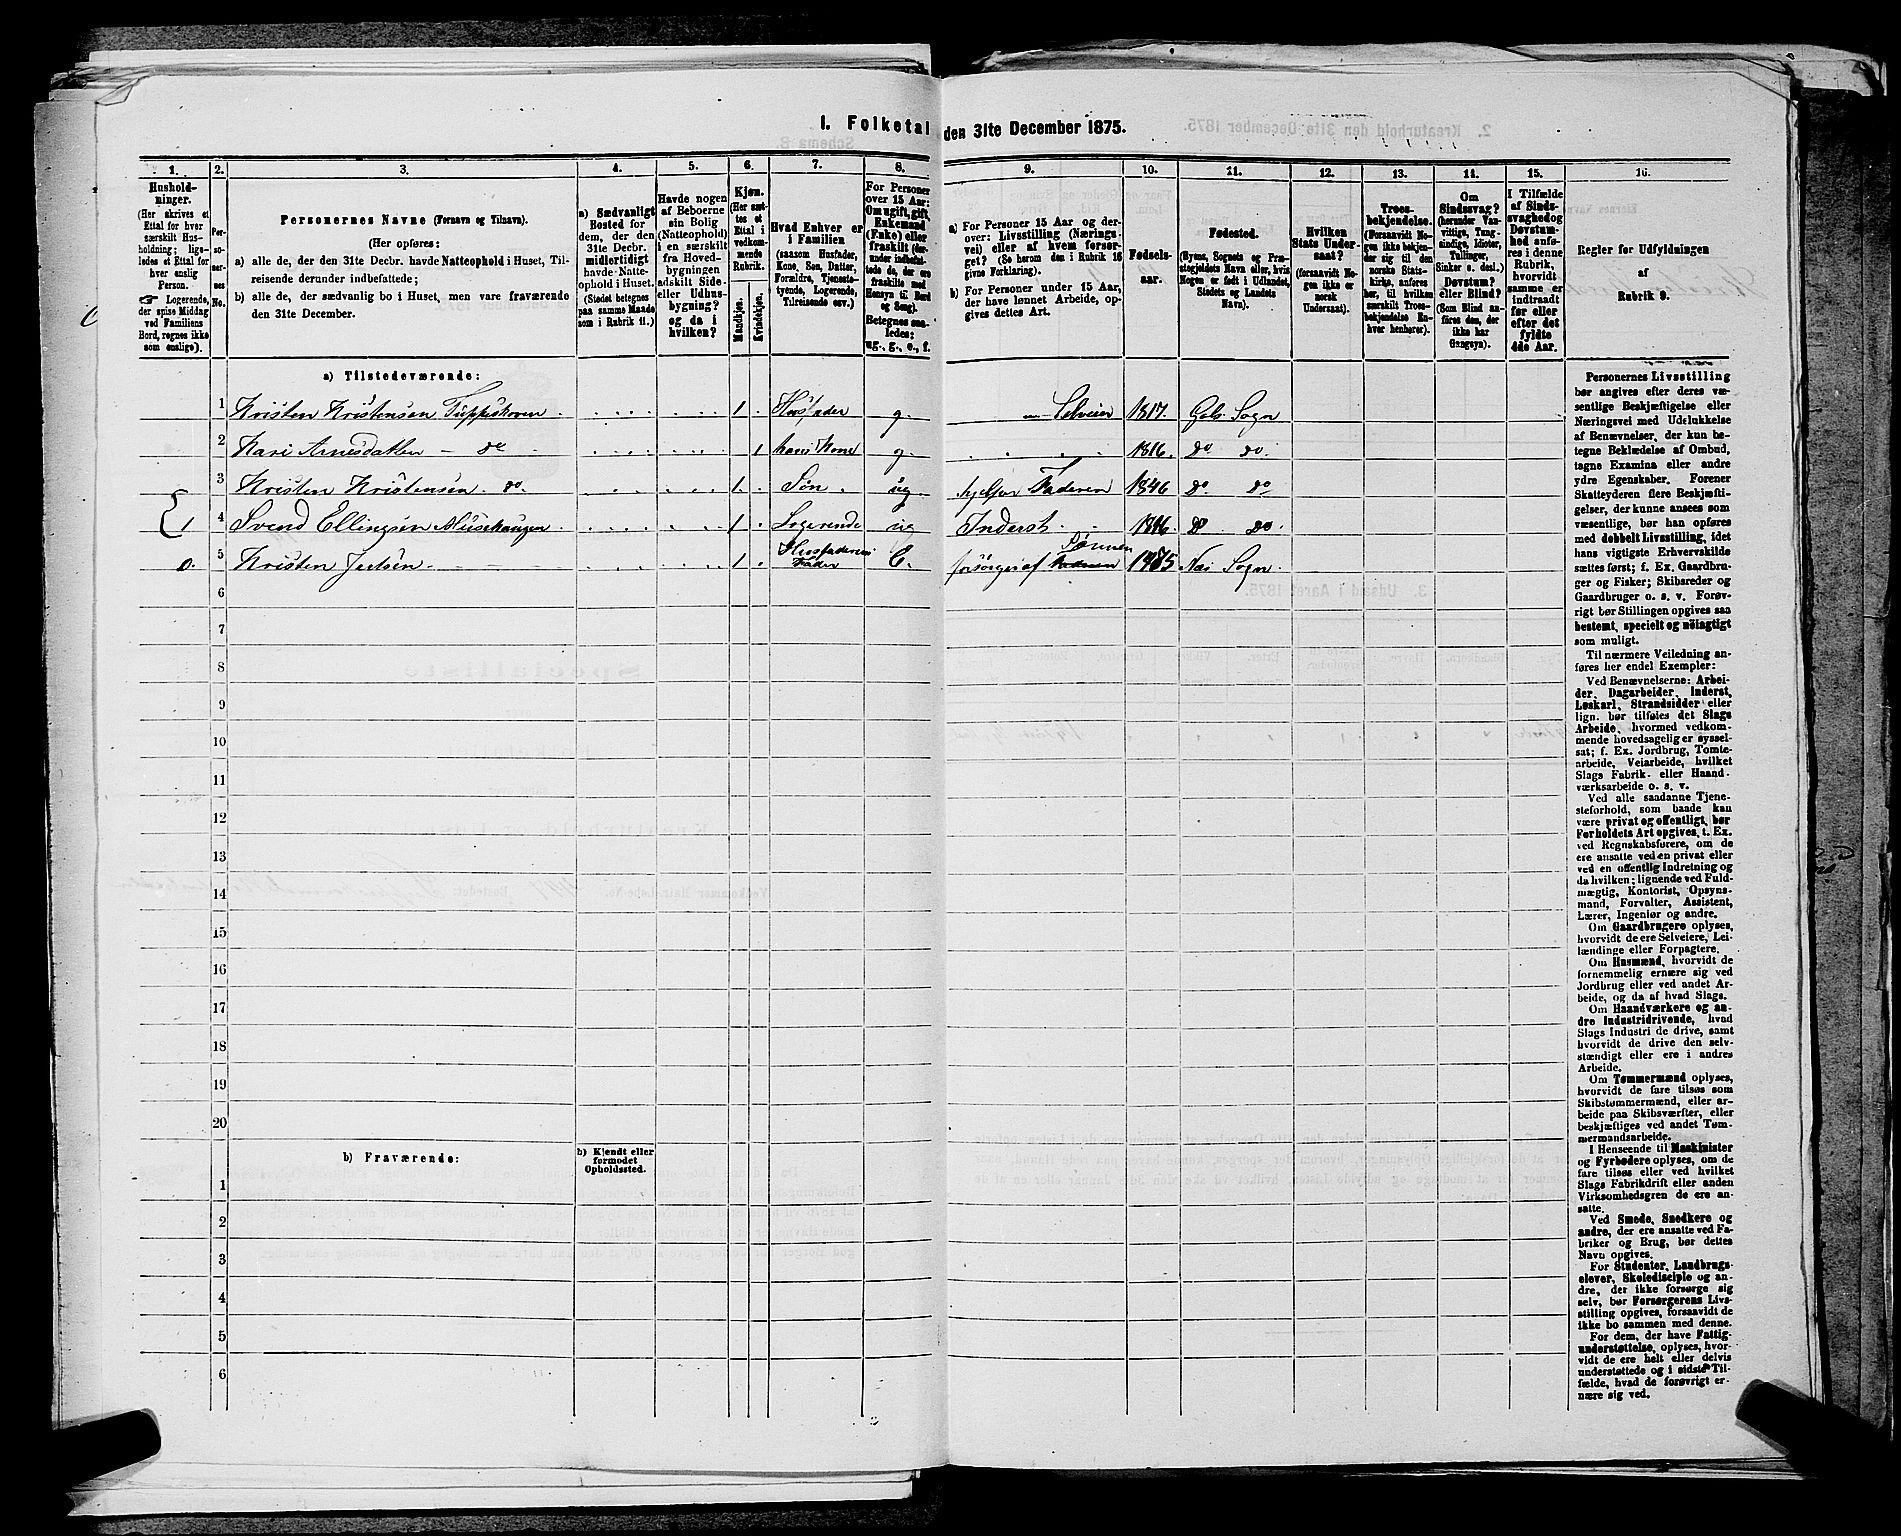 I. Folketal den 31te December 1875.
1.
2.
3.
4.
5.
6.
7.
8.
9.
10.
11.
12.
13.
14.
15.
16.
Hushold-
ninger.
(Her skrives et
Ettal for hver
særskilt Hus-
holdning; lige-
ledes et Ettal for
hver enslig
Person.
☞ Logerende,
der spise Middag
ved Familiens
Bord, regnes ikke
som enslige).
Per-
so-
ner-
nes
No.
Personernes Navne (Fornavn og Tilnavn).
(Her opføres:
a) alle de, der den 31te Decbr. havde Natteophold i Huset, Til-
reisende derunder indbefattede;
b) alle de, der sædvanlig bo i Huset, men vare fraværende
den 31te December.
a) Sædvanligt
Bosted for
dem, der den
31te Decbr.
midlertidigt
havde Natte-
ophold i Huset.
(Stedet betegnes
paa samme Maade
som i Rubrik 11.)
Havde nogen
af Beboerne
sin Bolig
(Natteophold)
i en særskilt
fra Hoved-
bygningen
adskilt Side-
eller Udhus-
bygning?
og da i
hvilken?
Kjøn.
(Her sæt-
tes et
Ettal i
vedkom-
mende
Rubrik.
Mandkjøn.
Kvindekjøn.
Hvad Enhver er
i Familien
(saasom Husfader,
Kone, Søn, Datter,
Forældre, Tjeneste-
tyende, Logerende,
Tilreisende osv.)
For Personer
over 15 Aar:
Om ugift, gift,
Enkemand
(Enke) eller
fraskilt (der-
under indbefat-
tede de, der ere
fraskilte med
Hensyn til Bord
og Seng).
Betegnes saa-
ledes:
ug., g., e., f.
a) For Personer 15 Aar og der-
over: Livsstilling (Nærings-
vei) eller af hvem forsør-
get? (Se herom den i Rubrik 16
givne Forklaring).
b) For Personer under 15 Aar,
der have lønnet Arbeide, op-
gives dettes Art.
Fødsels-
aar.
Fødested.
(Byens, Sognets og Præ-
stegjeldets Navn eller, hvis
Nogen er født i Udlandet,
Stedets og Landets
Navn).
Hvilken
Stats Under-
saat?
(forsaavidt No-
gen ikke er
norsk
Undersaat).
Troes-
bekjendelse.
(Forsaavidt No-
gen ikke bekjen-
der sig til den
norske Stats-
kirke, anføres
her, til hvilken
særskilt Troes-
bekjendelse En-
hver henhører).
Om
Sindssvag?
(herunder Van-
vittige, Tung-
sindige, Idioter,
Tullinger,
Sinker o. desl.)
Døvstum?
eller Blind?
(Som Blind an-
føres den, der
ikke har
Gangsyn).
I Tilfælde
af Sinds-
svaghed og
Døvstum-
hed anfø-
res i denne
Rubrik,
hvorvidt
samme er
indtraadt
før eller
efter det
fyldte
4de Aar.
Regler for Udfyldningen
af
Rubrik 9.
a) Tilstedeværende:
1 Kristen Kristensen Tuppeskoven 1 Husfader g. Selveier 1817 Gols Sogn
2 Kari Arnesdatter do 1 hans Kone g. 1816 do do
3 Kristen Kristensen do. 1 Søn ug. hjelper Faderen 1846 do do
1 4 Svend Ellingsen 1 Logerende ug Inderst do do
0. 5 Kristen 1 Husfaderens Fader E. forsørges af Sønnen Næs Sogn
6
7
8
9
10
11
12
13
14
15
16
17
18
19
20
b) Fraværende:
b) Kjendt eller
formodet
Opholdssted.
1
2
3
4
5
6
Personernes Livsstilling
bør angives efter deres væ-
sentlige Beskjæftigelse eller
Næringsvei med Udelukkelse
af Benævnelser, der kun be-
tegne Beklædelse af Ombud,
tagne Examina eller andre
ydre Egenskaber. Forener
Skatteyderen flere Beskjæfti-
gelser, der kunne ansees som
væsentlige, bør han opføres
med dobbelt Livsstilling, idet
hans vigtigste Erhvervskilde
sættes først; f. Ex. Gaardbru-
ger og Fisker; Skibsreder og
Gaardbruger o. s. v. Forøv-
rigt bør Stillingen opgives saa
bestemt, specielt og nøiagtigt
som muligt.
Til nærmere Veiledning an-
føres her endel Exempler:
Ved Benævnelserne: Arbei-
der, Dagarbeider, Inderst,
Løskarl, Strandsidder eller
lign. bør tilføies det Slags
Arbeide, hvormed vedkom-
mende hovedsagelig er syssel-
sat; f. Ex. Jordbrug, Tomte-
arbeide, Veiarbeide, hvilket
Slags Fabrik- eller Haand-
værksarbeide o. s. v.
Ved alle saadanne Tjene-
steforhold, som baade kan
være privat og offentligt, bør
Forholdets Art opgives, t. Ex.
ved Regnskabsførere, om de
ere ansatte ved en privat eller
ved en offentlig Indretning og
da hvilken; lignende ved Fuld-
mægtig, Kontorist, Opsyns-
mand, Forvalter, Assistent,
Lærer, Ingeniør og andre.
Om Gaardbrugere oplyses,
hvorvidt de ere Selveiere, Lei-
lændinge eller Forpagtere.
Om Husmænd, hvorvidt de
fornemmelig ernære sig ved
Jordbrug eller ved andet Ar-
beide, og da af hvad Slags.
Om Haandværkere og an-
dre Industridrivende, hvad
Slags Industri de drive, samt
hvorvidt de drive den selv-
stændigt eller ere i andres
Arbeide.
Om Tømmermænd oplyses,
hvorvidt de fare tilsøs som
Skibstømmermænd, eller ar-
beide paa Skibsværfter, eller
beskjæftiges ved andet Tøm-
mermandsarbeide.
I Henseende til Maskinister
og Fyrbødere oplyses, om de
fare tilsøs eller ved hvilket
Slags Fabrikdrift eller anden
Virksomhedsgren de ere an-
satte.
Ved Smede, Snedkere og
andre, der ere ansatte ved Fa-
briker og Brug, bør dettes
Navn opgives.
For Studenter, Landbrugs-
elever, Skoledisciple og an-
dre, der ikke forsørge sig
selv, bør Forsørgerens Livs-
stilling opgives, forsaavidt de
ikke bo sammen med denne.
For dem, der have Fattig-
understøttelse, oplyses, hvor-
vidt de ere helt eller delvis
understøttede og i sidste Til-
fælde, hvad de forøvrigt er-
nære sig ved.